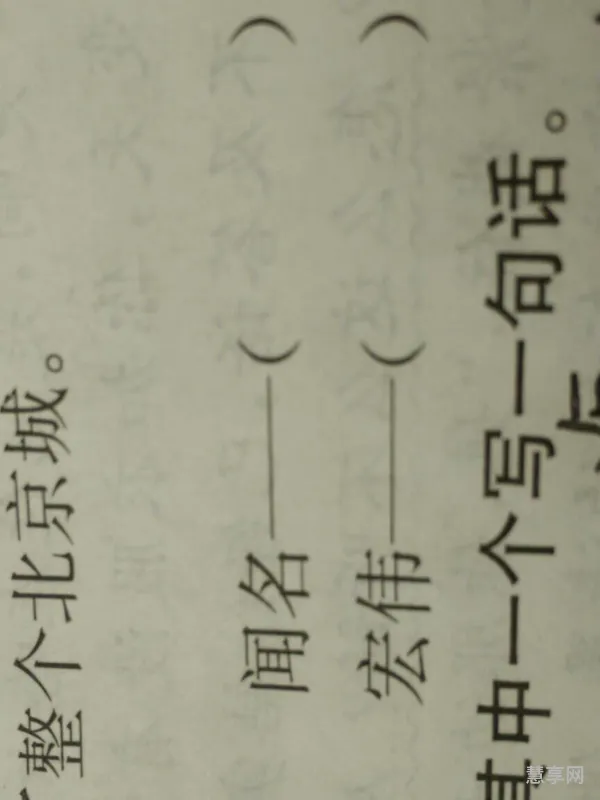 整个北京城。
闻名——( )
宏伟——( )
其中一个写一句话。
慧享网